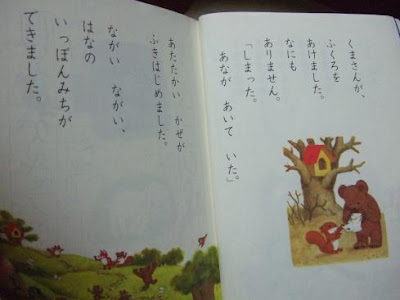 くまさんが、
ふくろを
あけました。
なにも
ありません。
「しまった。
あなが　あいて　いた。」
あたたかい　かぜが
ふきはじめました。
ながい　ながい、
はなの
いっぽんみちが
できました。